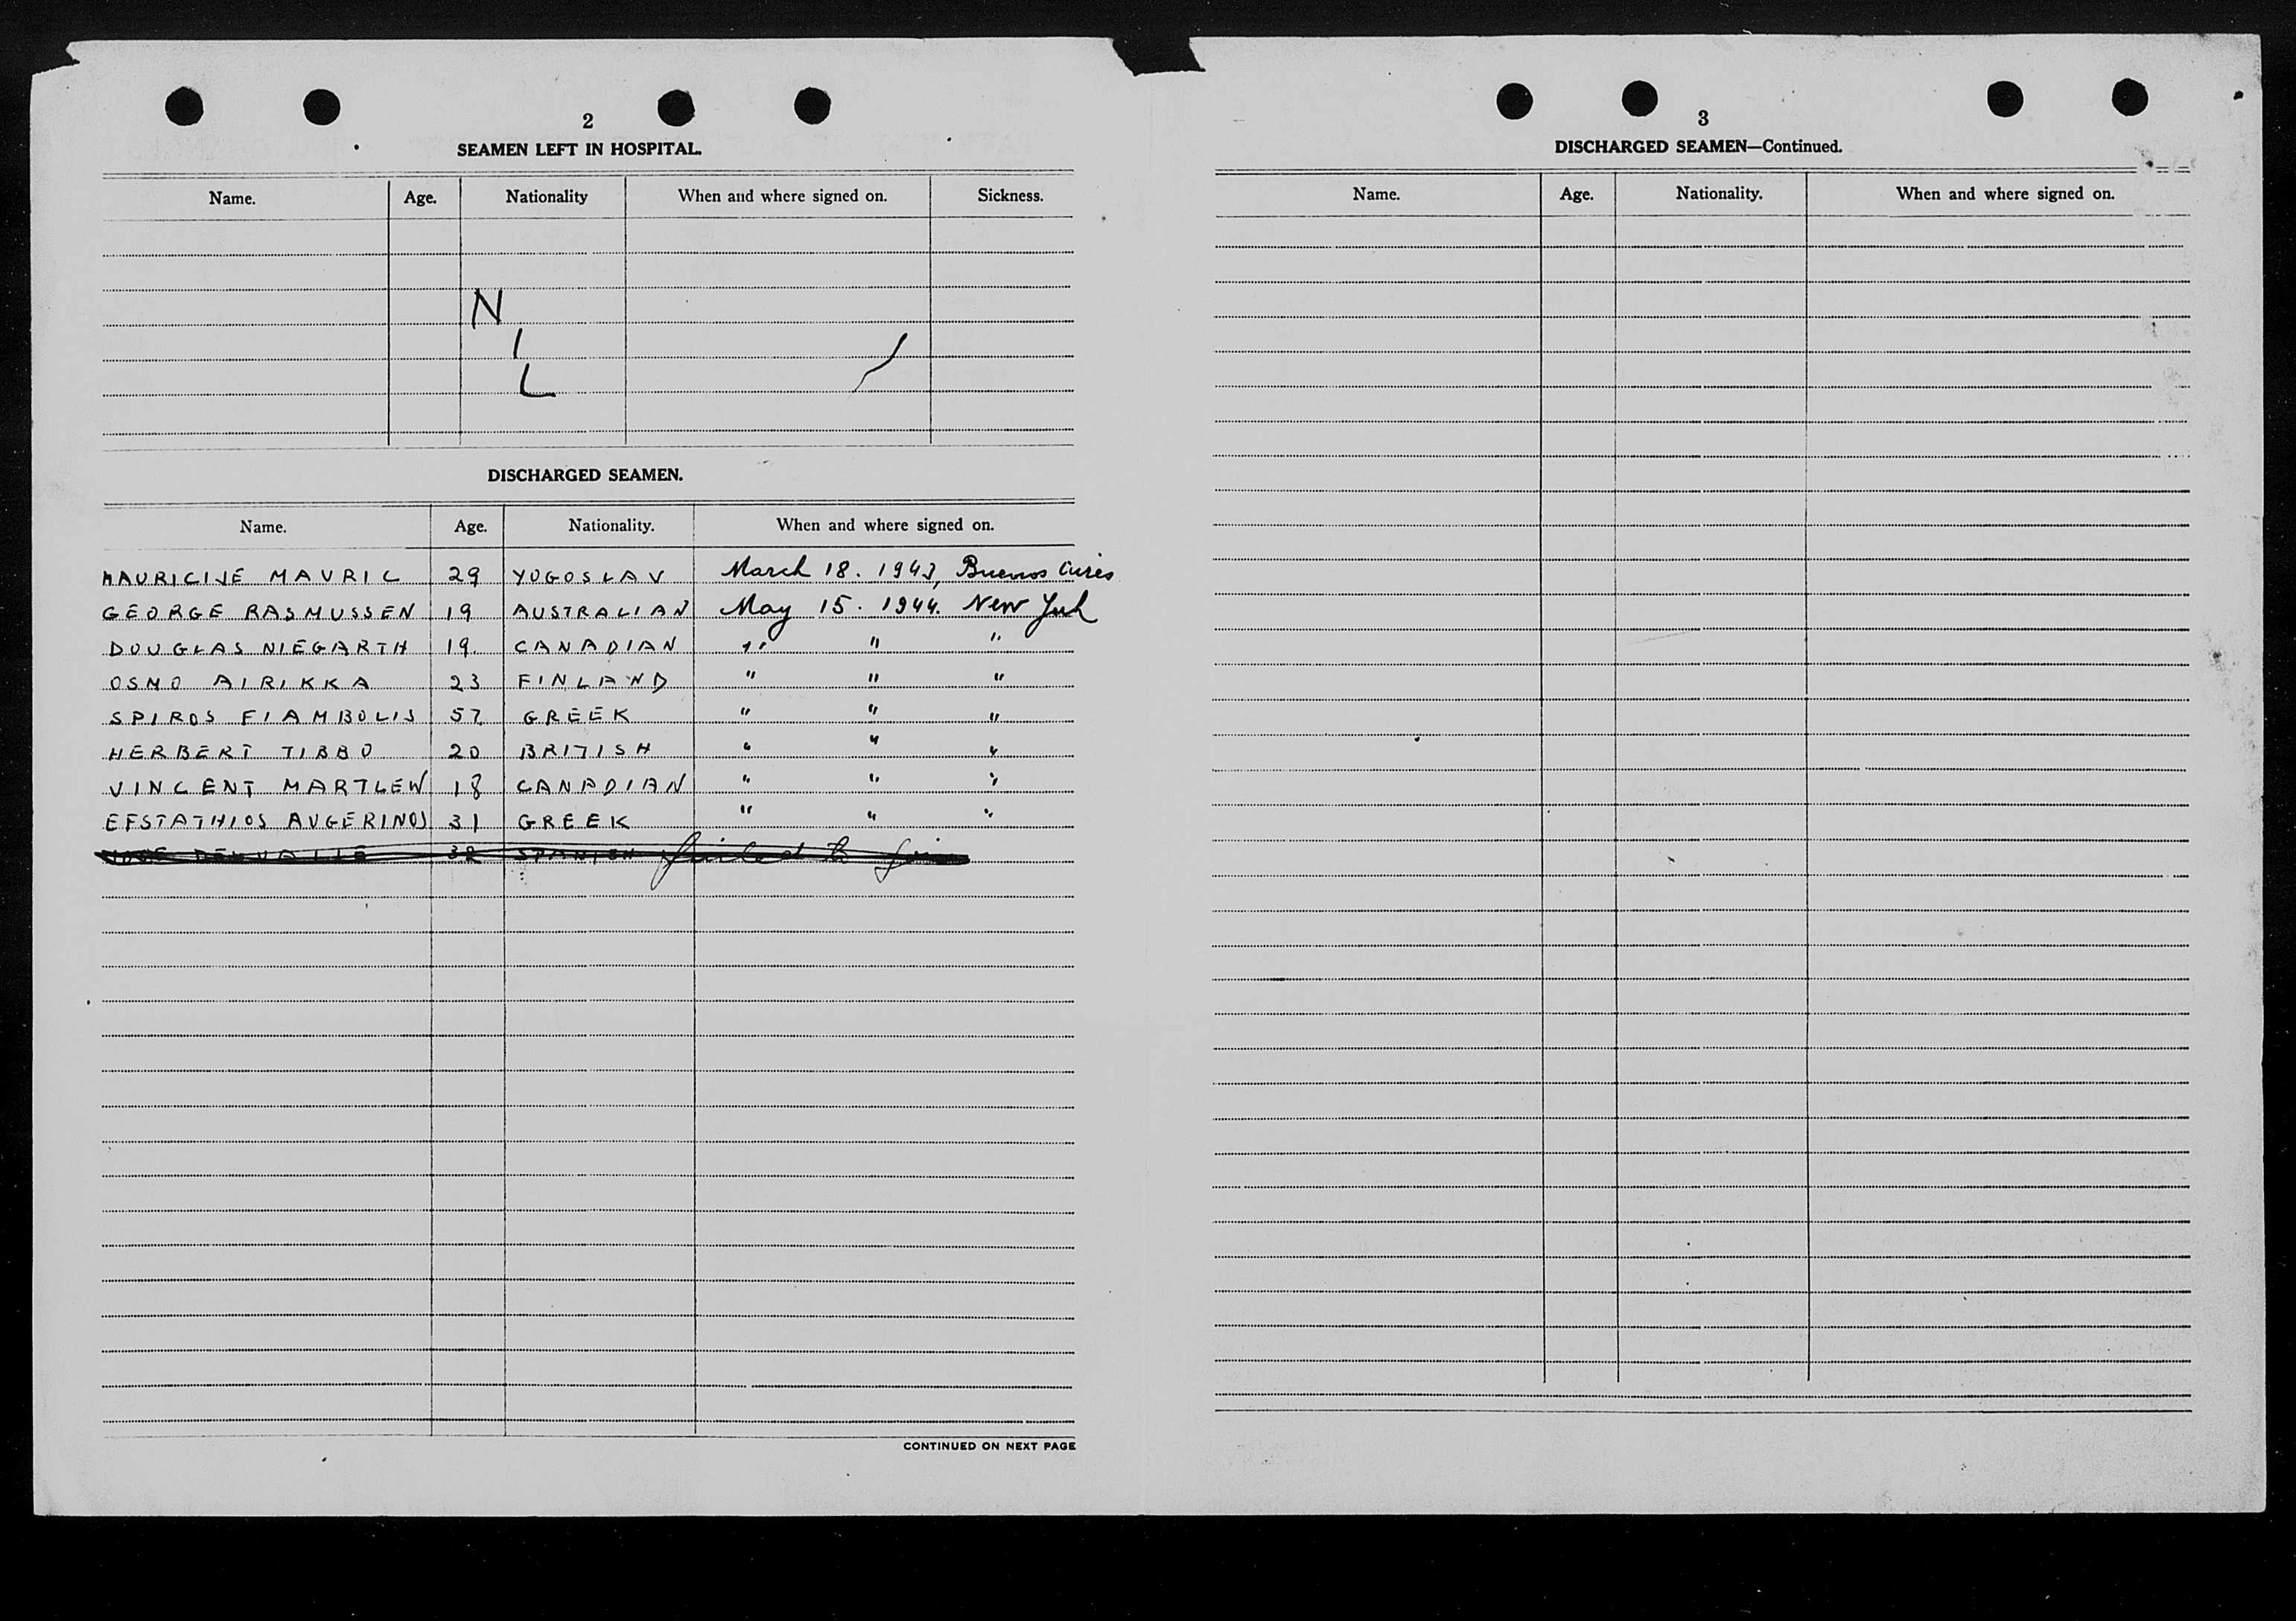 2
SEAMEN LEFT IN HOSPITAL.
Name. Age. Nationality When and where signed on. Sickness.
N
I
L
DISCHARGED SEAMEN.
Name. Age. Nationality. When and where signed on.
MAURICIJE MAVRIC 29 YUGOSLAV March 18. 1943, Buenos Aires
GEORGE RASMUSSEN 19 AUSTRALIAN May 15. 1944. New York
DOUGLAS NIEGARTH 19. CANADIAN " " "
OSMO AIRIKKA 23 FINLAND " " "
SPIROS FIAMBOLIS 57 GREEK " " "
HERBERT TIBBO 20 BRITISH " " "
VINCENT MARTLEW 18 CANADIAN " " "
EFSTATHIOS AVGERINOS 31 GREEK " " "
38 SPANISH failed to join
CONTINUED ON NEXT PAGE
3
DISCHARGED SEAMEN—Continued.
Name. Age. Nationality. When and where signed on.